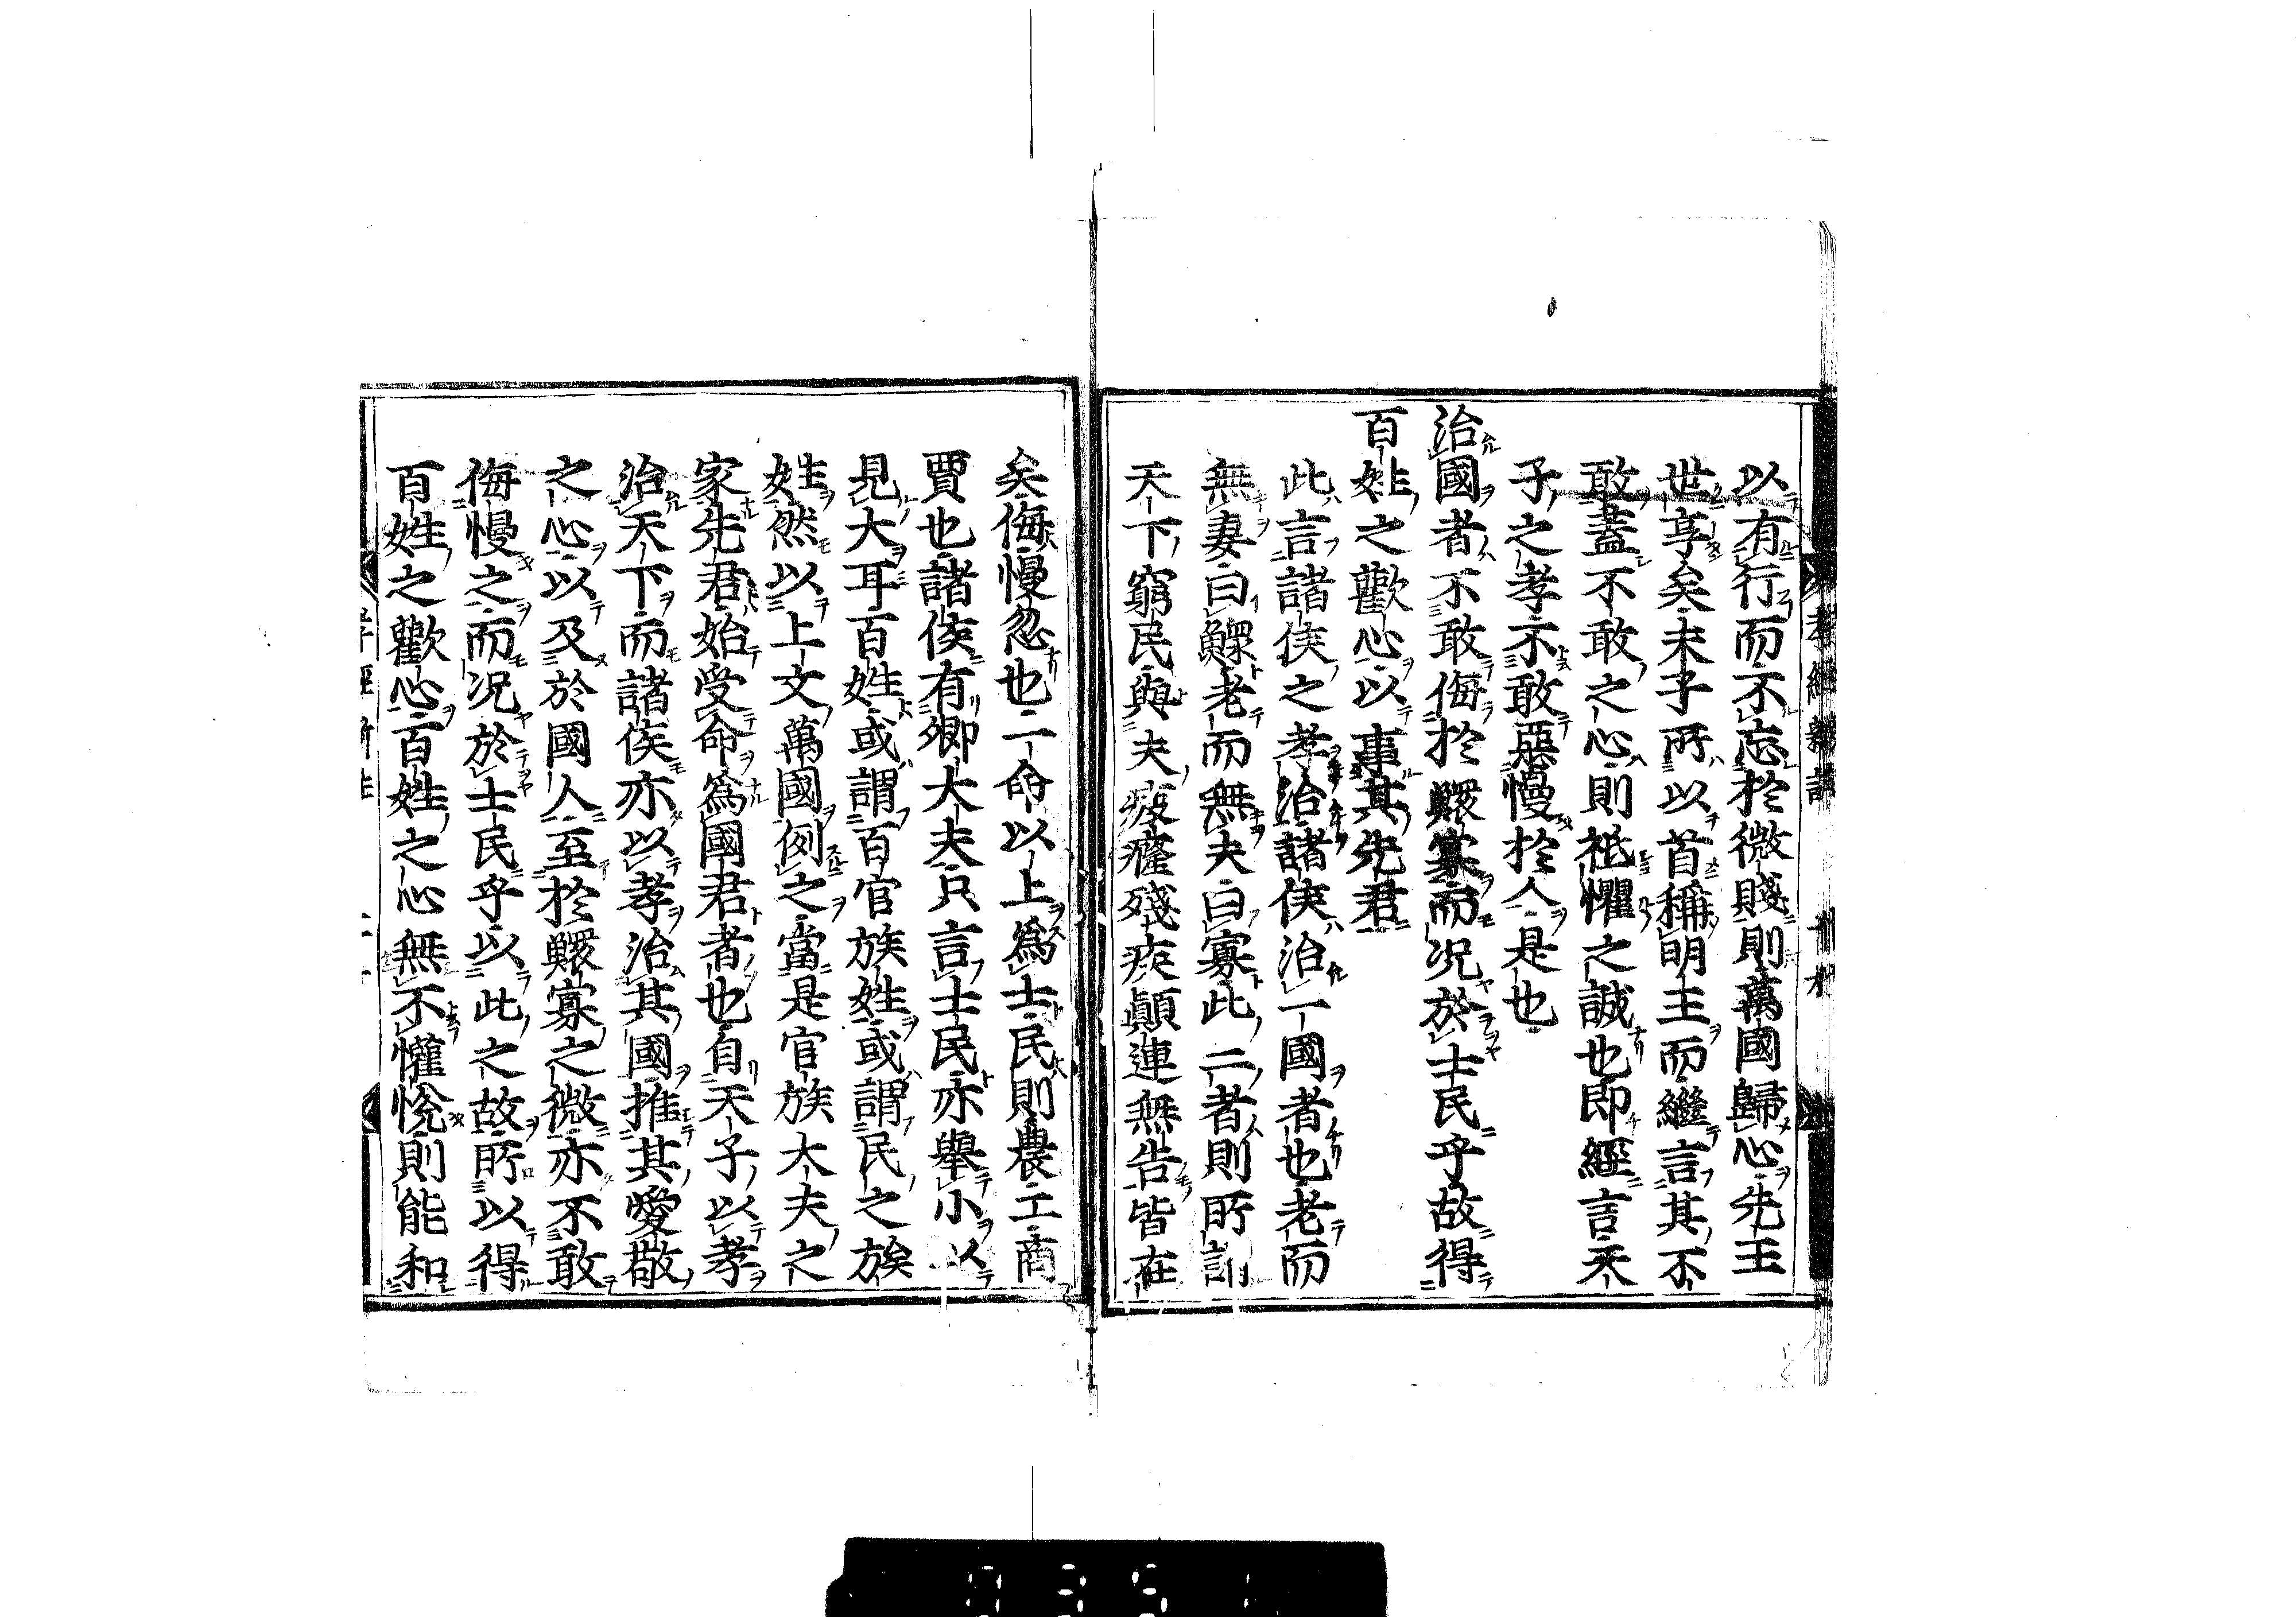 以有行而不忘於微賤則萬國歸心先王
世享矣朱子所以首稱明王而繼言其不
敢蓋不敢之心則祗懼之誠也即經言天
子之孝不敢惡慢於人是也
治國者不敢侮於鰥寡而況於士民乎故得
百姓之歡心以事其先君
此言諸侯之孝治諸侯治一國者也老而
無妻曰鰥老而無夫曰寡此二者則所謂
天下窮民與夫疲癃殘疾顛連無告皆在
矣侮慢忽也一命以上為士民則農工商
賈也諸侯有卿大夫只言士民亦舉小以
見大耳百姓或謂百官族姓或謂民之族
姓然以上文萬國例之當是官族大夫之
家先君始受命為國君者也自天子以孝
治天下而諸侯亦以孝治其國推其愛敬
之心以及於國人至於鰥寡之微亦不敢
侮慢之而況於士民乎以此之故所以得
百姓之歡心百姓之心無不懽悅則能和